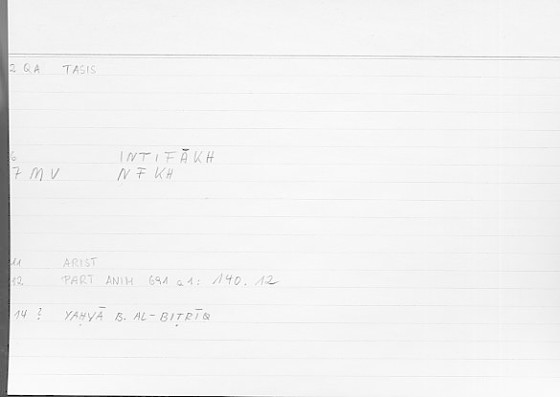 2 QA TASIS
6 INTIFĀKH
7 MV NFKH
11 ARIST
12 PART ANIM 691 a 1: 140.12
14 ? YAḤYĀ B. AL-BIṬRĪQ